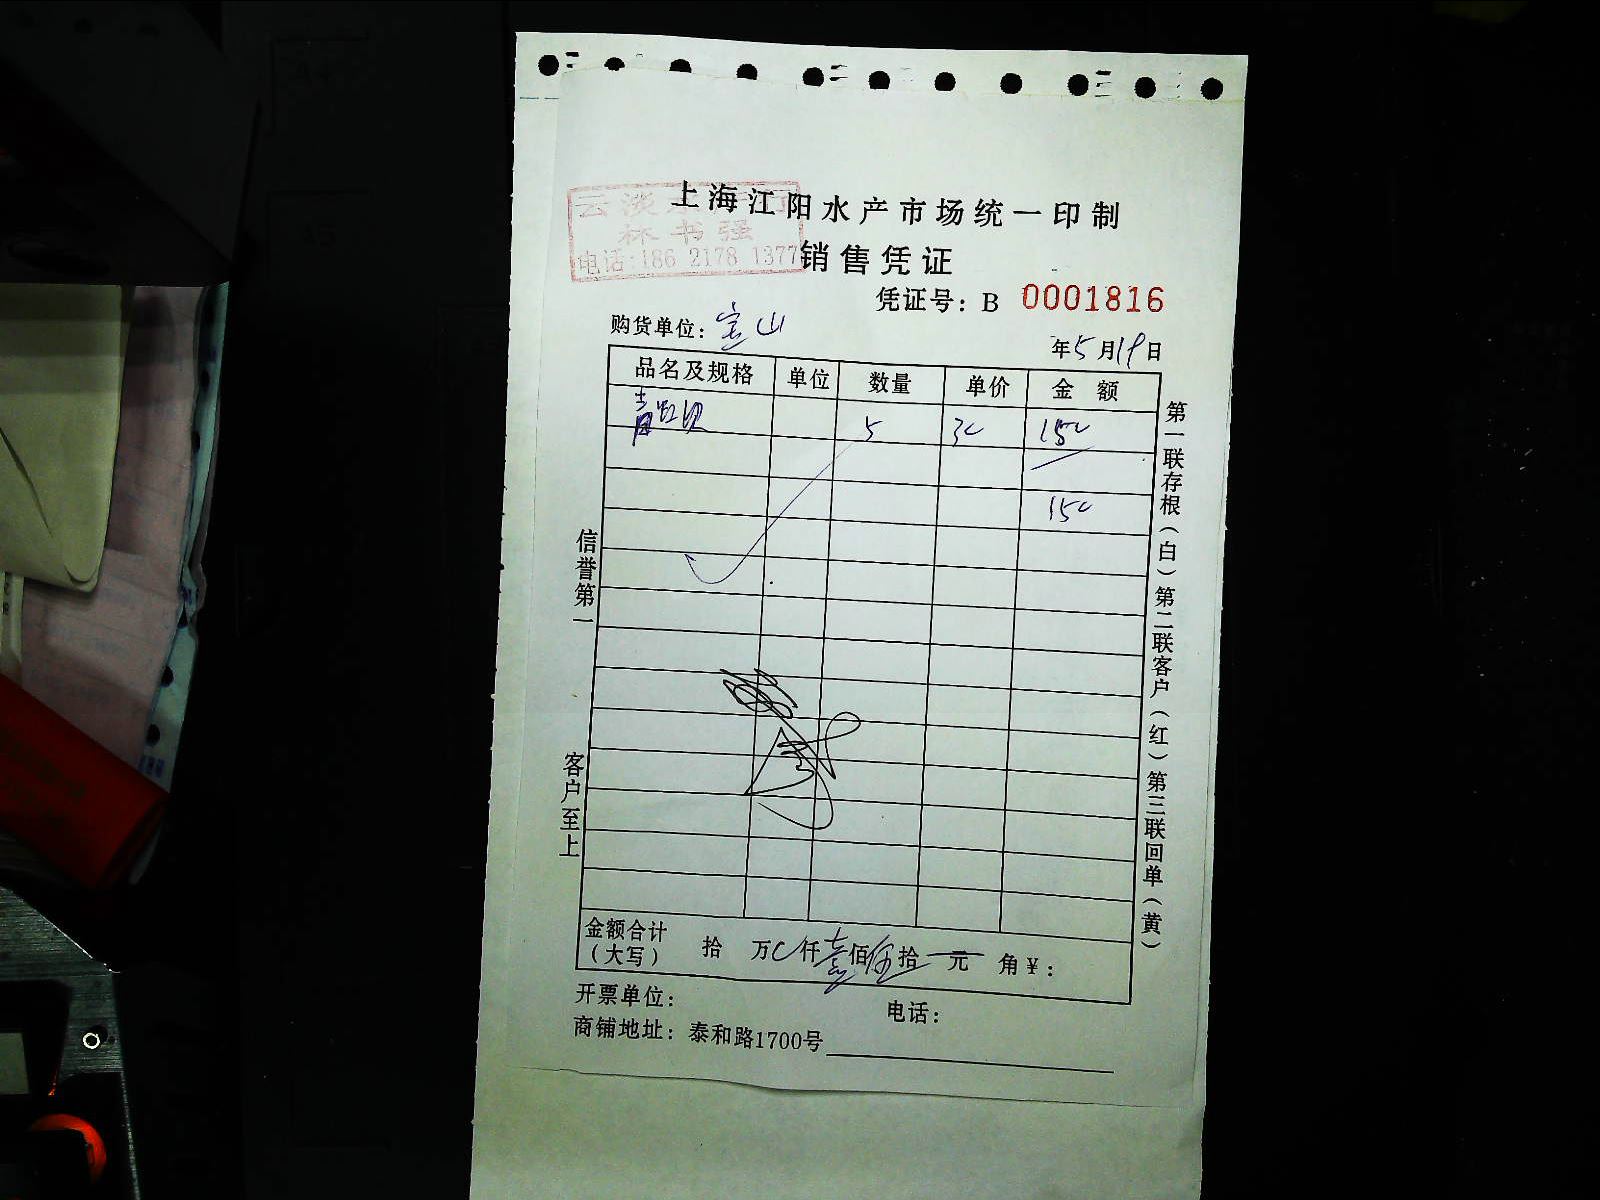 上海江阳水产市场统一印制
云淡水产行
林书强
电话:186 2178 1377
销售凭证
凭证号：B 0001816
购货单位：宝山
年5月19日
品名及规格 单位 数量 单价 金 额
5 30 150
150
信誉第一
客户至上
第一联存根（白）第二联客户（红）第三联回单（黄）
金额合计（大写） 拾 万 仟壹佰伍拾 元 角￥：
开票单位： 电话：
商铺地址：泰和路1700号